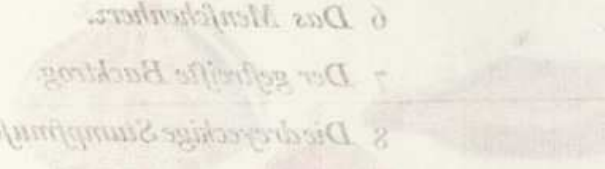 6 Das Menschenherz.
7 Der gestreifte Backtrog.
8 Die dreyeckige Stumpfmuſ